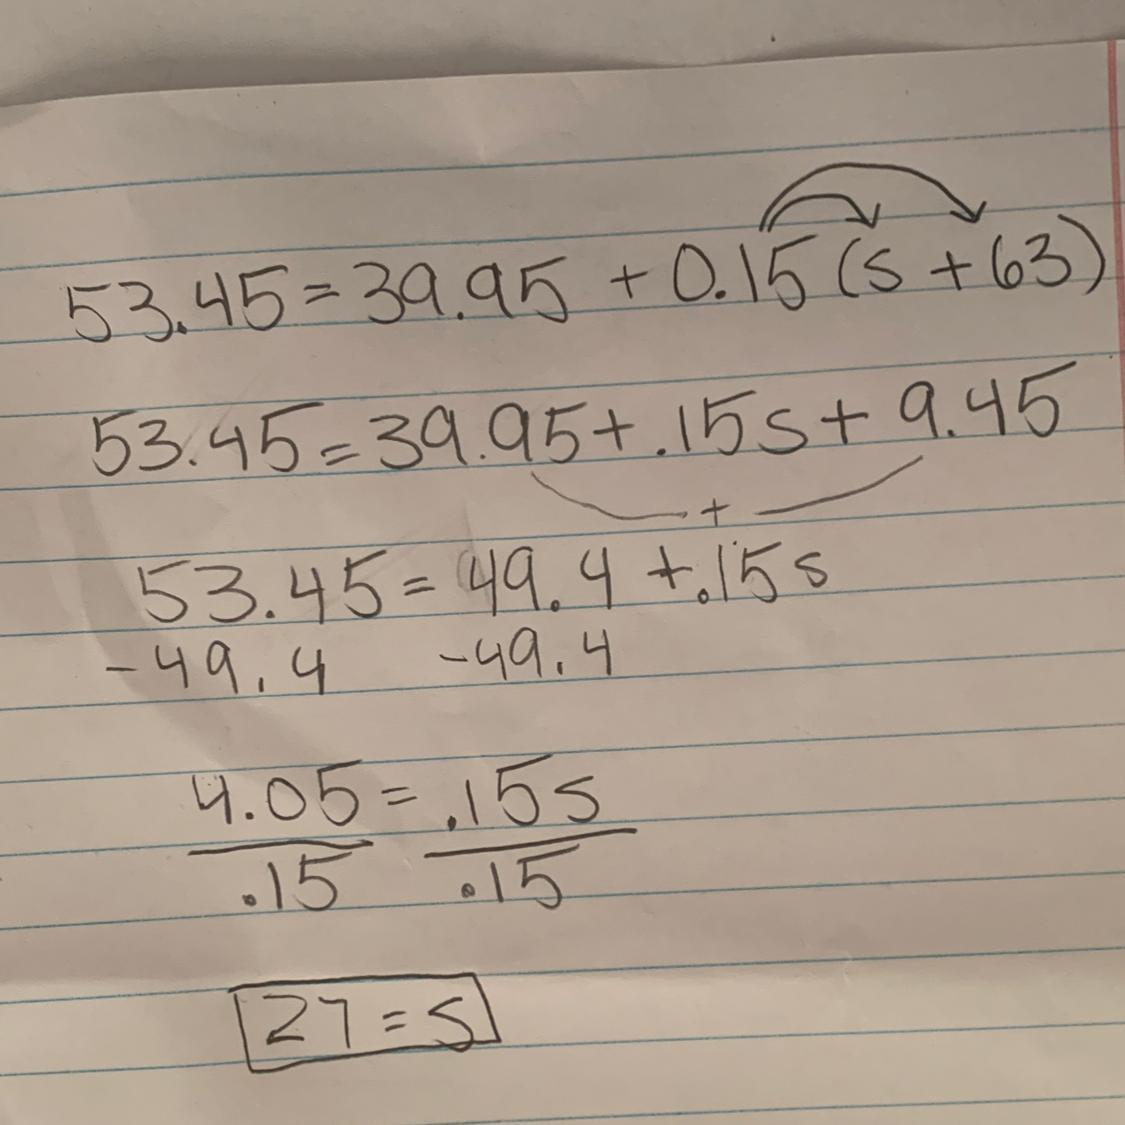 53.45 = 39.95 + 0.15 (s + 63)
53.45 = 39.95 + .15s + 9.45
+
53.45 = 49.4 + .15s
-49.4 -49.4
4.05 = .15s
.15 .15
27 = s